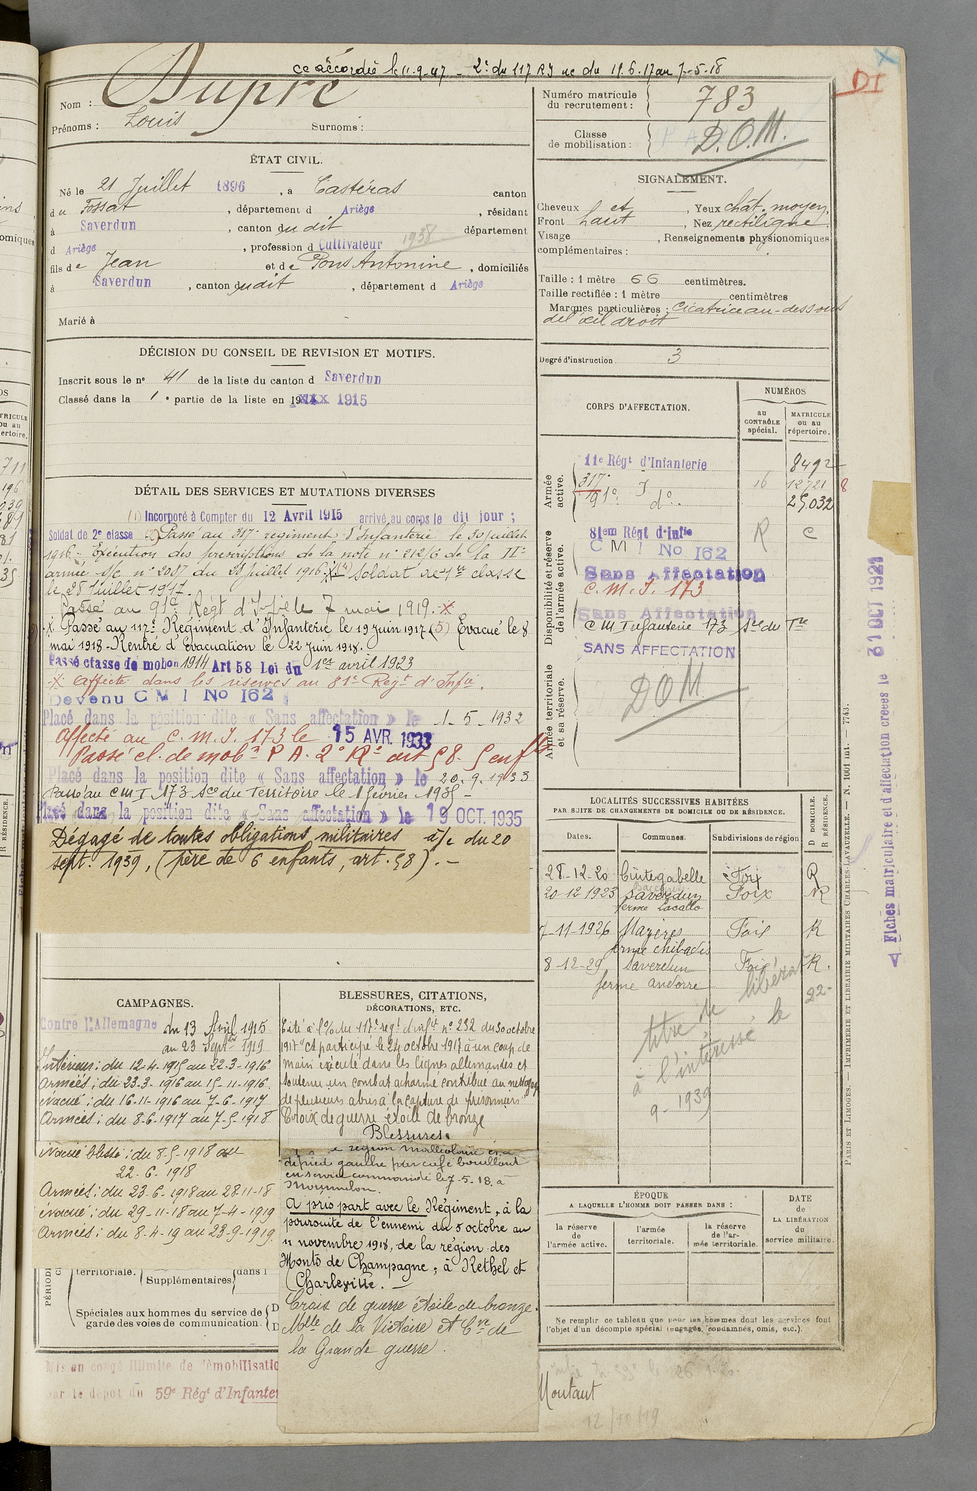 cc accordée le 11.9.47 - 2e du 117 RI uc du 19.6.17 au 7-5-18
Nom : Dupré
Prénoms : Louis Surnoms :
ÉTAT CIVIL.
Né le 21 Juillet 1896, à Castéras canton
du Fossat, département d Ariège, résidant
à Saverdun, canton du dit département
d Ariège, profession d Cultivateur 1938
fils de Jean et de Pons Antonine, domiciliés
à Saverdun, canton dudit, département d Ariège
Marié à
DÉCISION DU CONSEIL DE REVISION ET MOTIFS.
Inscrit sous le no 41 de la liste du canton d Saverdun
Classé dans la 1e partie de la liste en 1915
DÉTAIL DES SERVICES ET MUTATIONS DIVERSES
(1) Incorporé à Compter du 12 Avril 1915 arrivé au corps le dit jour ;
Soldat de 2e classe Passé au 317e régiment d'Infanterie le 30 juillet
1916 - Exécution des prescriptions de la note no 212/6 de la IIe
armée s/c no 2087 du 28 juillet 1916. Soldat de 1re classe
le 28 juillet 1917.
Passé au 91e Régt d'Infie le 7 mai 1919. x
x Passé au 117e Régiment d'Infanterie le 19 Juin 1917 (5) Evacué le 8
mai 1918 - Rentré d'évacuation le 22 Juin 1918.
Passé classe de mobon 1914 Art 58 Loi du 1er avril 1923
x Affecté dans les réserves au 81e Régt d'Infie.
Devenu C M I No 162
Placé dans la position dite « Sans affectation » le 1-5-1932
Affecté au C.M.I. 173 le 15 AVR. 1933
Passé cl. de mobon P A. 2e Re art 58. 5 enfts
Placé dans la position dite « Sans affectation » le 20.9.1933
Passé au CMI 173 Sce du Territoire le 1 février 1935 -
Placé dans la position dite « Sans affectation » le 19 OCT. 1935
Dégagé de toutes obligations militaires à/c du 20
sept. 1939, (père de 6 enfants, art. 58). -
CAMPAGNES.
Contre l'Allemagne du 13 Avril 1915
au 23 Septbre 1919
Intérieur : du 12-4-1915 au 22-3-1916
Armées : du 23-3-1916 au 15-11-1916.
Evacué : du 16-11-1916 au 7-6-1917
Armées : du 8-6-1917 au 7-5-1918
Evacué blessé : du 8-5-1918 au
22-6-1918
Armées : du 23-6-1918 au 28-11-18
Evacué : du 29-11-18 au 7-4-1919
Armées : du 8-4-19 au 23-9-1919.
territoriale.
Supplémentaires dans l
Spéciales aux hommes du service de
garde des voies de communication.
Mis en congé illimité de démobilisatio
par le dépôt du 59e Régt d'Infanter
BLESSURES, CITATIONS,
DÉCORATIONS, ETC.
Cité à l'O/ du 117e régt d'Infie no 232 du 30 octobre
1917 "A participé le 24 octobre 1917 à un coup de
main exécuté dans les lignes allemandes et
soutenu un combat acharné contribué au nettoyage
de plusieurs abris à la capture de prisonniers"
Croix de guerre étoile de bronze
Blessures.
région malléolaire
de pied gauche par café bouillant
en service commandé le 7-5-18. à
Mourmelon.
A pris part avec le Régiment, à la
poursuite de l'ennemi du 5 octobre au
11 novembre 1918, de la région des
Monts de Champagne, à Rethel et
Charleville. -
Croix de guerre étoile de bronze.
Mlle de la Victoire et Cve de
la Grande guerre.
Numéro matricule
du recrutement : 783
DI
Classe
de mobilisation : D.O.M.
SIGNALEMENT.
Cheveux et, Yeux chât. moyen,
Front haut, Nez rectiligne
Visage, Renseignements physionomiques
complémentaires :
Taille : 1 mètre 66 centimètres.
Taille rectifiée : 1 mètre centimètres
Marques particulières : cicatrice au-dessous
de l'œil droit
Degré d'instruction 3
CORPS D'AFFECTATION.
NUMÉROS
au
CONTRÔLE
spécial.
MATRICULE
ou au
répertoire.
Armée
active.
11e Régt d'Infanterie 8492
317e I 16 12721
91e do 25.032
Disponibilité et réserve
de l'armée active.
81em Régt d'Infie R C
C M I No 162
Sans Affectation
C.M.I. 173
Sans Affectation
C M Infanterie 173 Sce du Tre
SANS AFFECTATION
Armée territoriale
et sa réserve.
DOM
LOCALITÉS SUCCESSIVES HABITÉES
PAR SUITE DE CHANGEMENTS DE DOMICILE OU DE RÉSIDENCE.
Dates. Communes. Subdivisions de région D DOMICILE. R RÉSIDENCE.
28-12-20 Cintegabelle Foix R
20-12-1923 Saverdun Foix R
ferme Lacallo
7-11-1926 Mazères Foix R
ferme chibadis
8-12-29 Saverdun Foix R.
ferme andorre
titre de libérat 22-
à l'intéressé le
9-1939
ÉPOQUE
A LAQUELLE L'HOMME DOIT PASSER DANS :
la réserve
de l'armée active.
l'armée
territoriale.
la réserve
de l'ar-
mée territoriale.
DATE
de
LA LIBÉRATION
du
service militaire.
Ne remplir ce tableau que pour les hommes dont les services font
l'objet d'un décompte spécial (engagés, condamnés, omis, etc.).
Montaut
12/10/19
Fiches matriculaire et d'affectation créées le 31 OCT 1921
PARIS ET LIMOGES. — IMPRIMERIE ET LIBRAIRIE MILITAIRES CHARLES-LAVAUZELLE. — N. 1601 M. — 7743.